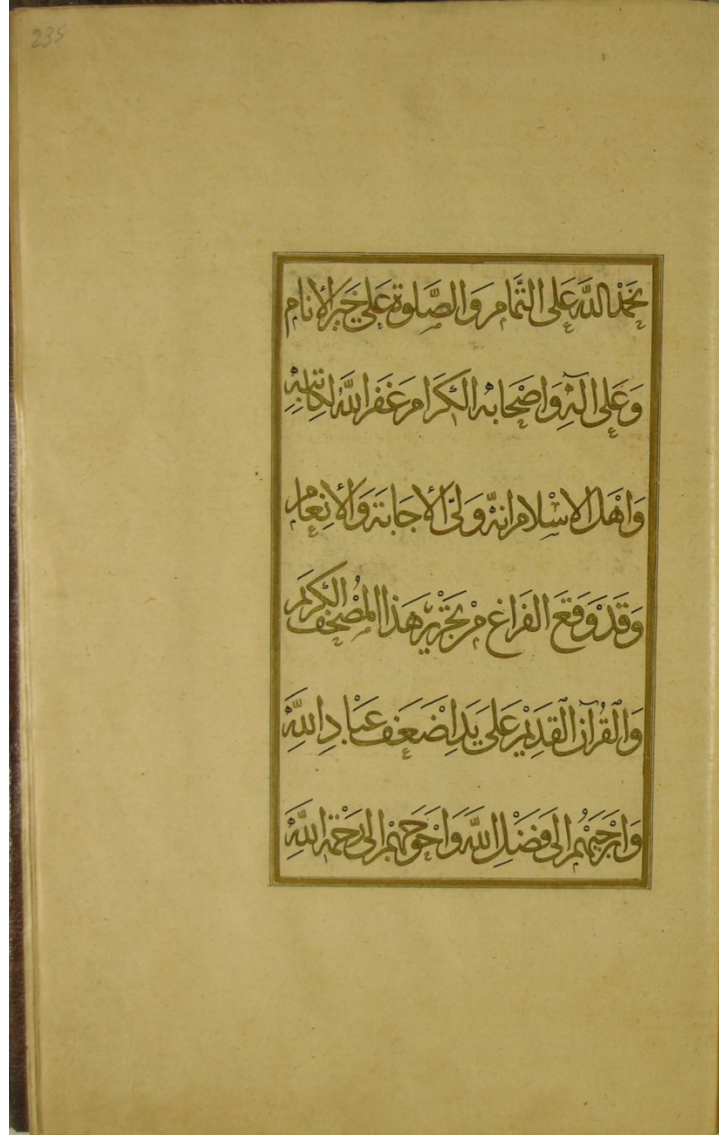 235
نَحْمَدُ اللهَ عَلَى التَّمَامِ وَالصَّلوةُ عَلَى خَيْرِ الْأَنَامِ
وَعَلَى آلِهِ وَاَصْحَابِهِ الْكِرَامِ غَفَرَ اللهُ لِكَاتِبِهِ
وَاَهْلِ الْاِسْلَامِ اِنَّهُ وَلِيُّ الْأِجَابَةِ وَالْأِنْعَامِ
وَقَدْ وَقَعَ الْفَرَاغُ مِنْ تَحْرِيْرِ هَذَا الْمُصْحَفِ الْكَرِيمِ
وَالْقُرْآنِ الْقَدِيْمِ عَلَى يَدِ اَضْعَفِ عِبَادِ اللهِ
وَاَرْجَيهُمْ اِلَى فَضْلِ اللهِ وَاَحْوَجِهِمْ اِلَى رَحْمَةِ اللهِ